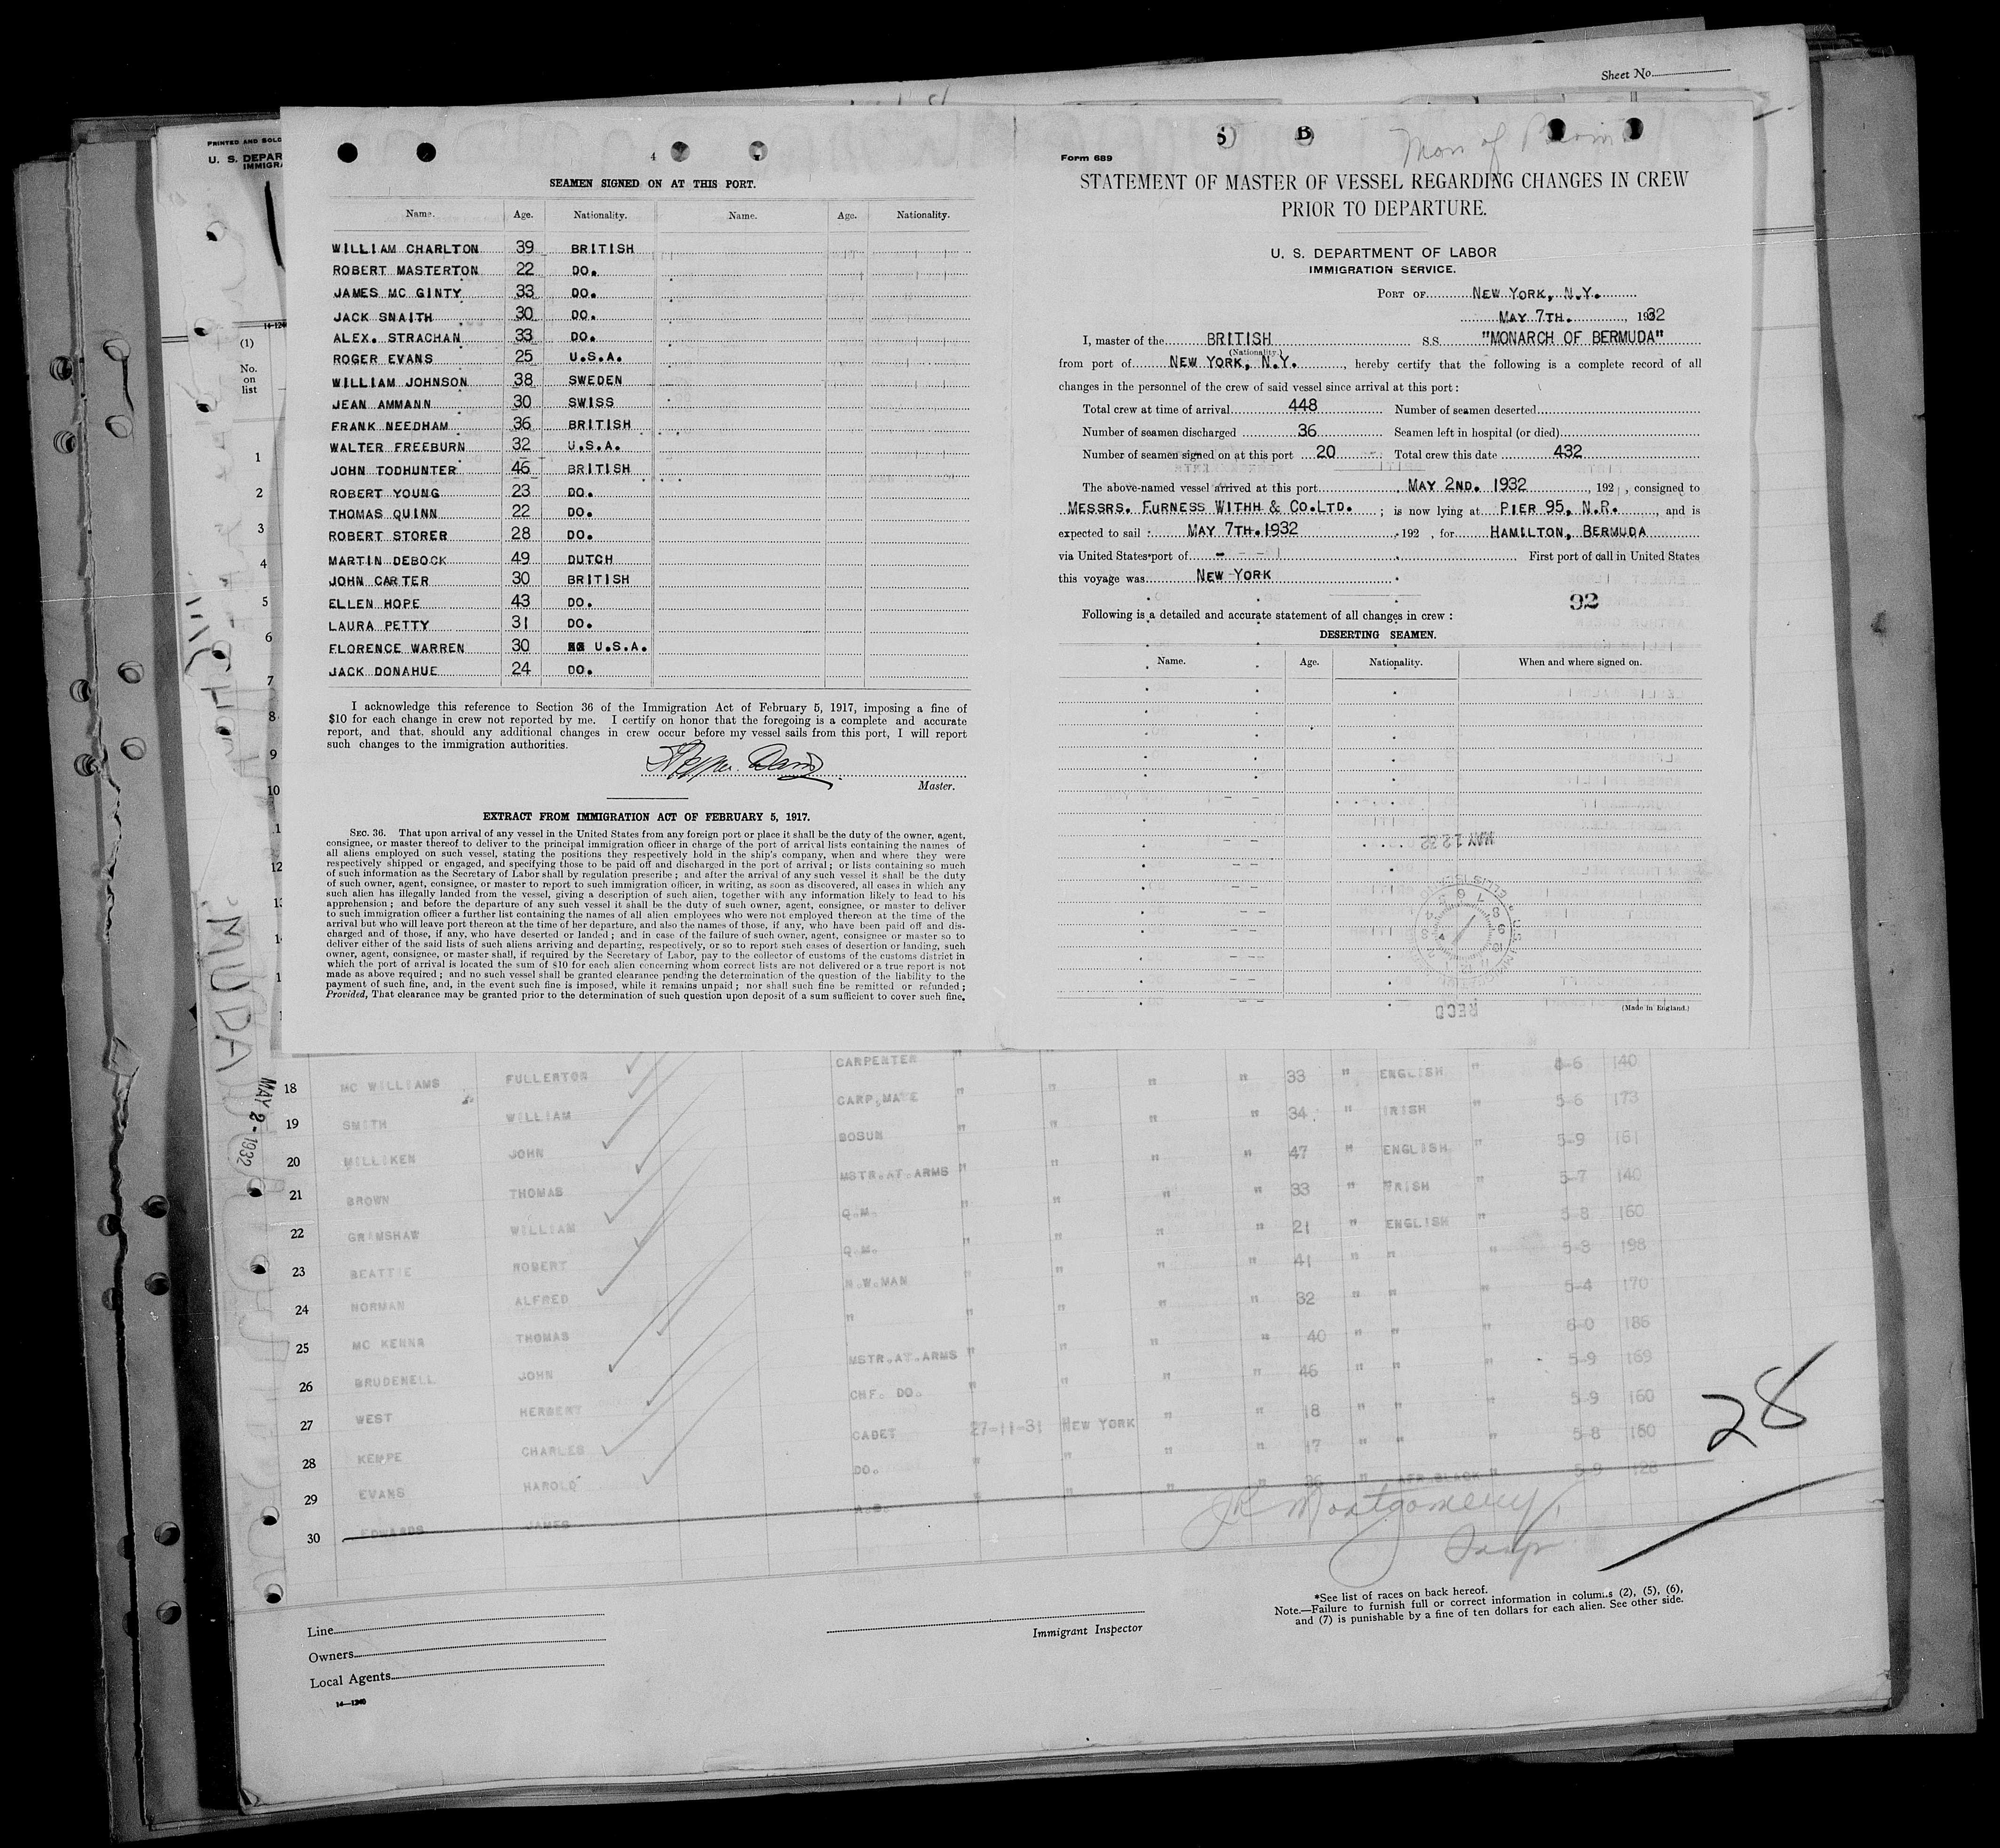 Sheet No.
PRINTED AND SOLD
U. S. DEPAR
IMMIGRA
4
SEAMEN SIGNED ON AT THIS PORT.
Name. Age. Nationality. Name. Age. Nationality.
WILLIAM CHARLTON 39 BRITISH
ROBERT MASTERTON 22 DO.
JAMES MC GINTY 33 DO.
JACK SNAITH 30 DO.
ALEX. STRACHAN 33 DO.
ROGER EVANS 25 U.S.A.
WILLIAM JOHNSON 38 SWEDEN
JEAN AMMANN 30 SWISS
FRANK NEEDHAM 36 BRITISH
WALTER FREEBURN 32 U.S.A.
JOHN TODHUNTER 46 BRITISH
ROBERT YOUNG 23 DO.
THOMAS QUINN 22 DO.
ROBERT STORER 28 DO.
MARTIN DEBOCK 49 DUTCH
JOHN CARTER 30 BRITISH
ELLEN HOPE 43 DO.
LAURA PETTY 31 DO.
FLORENCE WARREN 30 U.S.A.
JACK DONAHUE 24 DO.
I acknowledge this reference to Section 36 of the Immigration Act of February 5, 1917, imposing a fine of
$10 for each change in crew not reported by me. I certify on honor that the foregoing is a complete and accurate
report, and that, should any additional changes in crew occur before my vessel sails from this port, I will report
such changes to the immigration authorities.
Master.
EXTRACT FROM IMMIGRATION ACT OF FEBRUARY 5, 1917.
SEC. 36. That upon arrival of any vessel in the United States from any foreign port or place it shall be the duty of the owner, agent,
consignee, or master thereof to deliver to the principal immigration officer in charge of the port of arrival lists containing the names of
all aliens employed on such vessel, stating the positions they respectively hold in the ship's company, when and where they were
respectively shipped or engaged, and specifying those to be paid off and discharged in the port of arrival; or lists containing so much
of such information as the Secretary of Labor shall by regulation prescribe; and after the arrival of any such vessel it shall be the duty
of such owner, agent, consignee, or master to report to such immigration officer, in writing, as soon as discovered, all cases in which any
such alien has illegally landed from the vessel, giving a description of such alien, together with any information likely to lead to his
apprehension; and before the departure of any such vessel it shall be the duty of such owner, agent, consignee, or master to deliver
to such immigration officer a further list containing the names of all alien employees who were not employed thereon at the time of the
arrival but who will leave port thereon at the time of her departure, and also the names of those, if any, who have been paid off and dis-
charged and of those, if any, who have deserted or landed; and in case of the failure of such owner, agent, consignee or master so to
deliver either of the said lists of such aliens arriving and departing, respectively, or so to report such cases of desertion or landing, such
owner, agent, consignee, or master shall, if required by the Secretary of Labor, pay to the collector of customs of the customs district in
which the port of arrival is located the sum of $10 for each alien concerning whom correct lists are not delivered or a true report is not
made as above required; and no such vessel shall be granted clearance pending the determination of the question of the liability to the
payment of such fine, and, in the event such fine is imposed, while it remains unpaid; nor shall such fine be remitted or refunded;
Provided, That clearance may be granted prior to the determination of such question upon deposit of a sum sufficient to cover such fine.
Form 689
Mon of
STATEMENT OF MASTER OF VESSEL REGARDING CHANGES IN CREW
PRIOR TO DEPARTURE.
U. S. DEPARTMENT OF LABOR
IMMIGRATION SERVICE.
PORT OF NEW YORK, N.Y.
MAY 7TH. , 1932
I, master of the BRITISH S.S. "MONARCH OF BERMUDA"
(Nationality.)
from port of NEW YORK, N.Y. , hereby certify that the following is a complete record of all
changes in the personnel of the crew of said vessel since arrival at this port:
Total crew at time of arrival 448 Number of seamen deserted
Number of seamen discharged 36 Seamen left in hospital (or died)
Number of seamen signed on at this port 20 Total crew this date 432
The above-named vessel arrived at this port MAY 2ND. 1932 , 192 , consigned to
MESSRS. FURNESS WITHH & CO.LTD. ; is now lying at PIER 95, N.R. , and is
expected to sail : MAY 7TH.1932 192 , for HAMILTON, BERMUDA
via United States port of - - - First port of call in United States
this voyage was NEW YORK
92
Following is a detailed and accurate statement of all changes in crew :
DESERTING SEAMEN.
Name. Age. Nationality. When and where signed on.
MAY 12 32
RECD
(Made in England.)
14-1240
(1)
No.
on
list
1
2
3
4
5
6
7
8
9
10
MUDA
MAY 2-1932
CARPENTER " 5-6 140
18 MC WILLIAMS FULLERTON CARP.MATE " " " " 33 " ENGLISH " 5-6 173
19 SMITH WILLIAM BOSUN " " " 34 " IRISH " 5-9 161
20 MILLIKEN JOHN MSTR.AT.ARMS " " " " 47 " ENGLISH " 5-7 140
21 BROWN THOMAS Q.M. " " " " 33 " IRISH " 5-8 160
22 GRIMSHAW WILLIAM Q.M. " " " " 21 " ENGLISH " 5-3 198
23 BEATTIE ROBERT N.W.MAN " " " " 41 " " " 5-4 170
24 NORMAN ALFRED " " " " " 32 " " " 6-0 186
25 MC KENNA THOMAS MSTR.AT.ARMS " " " " 40 " " " 5-9 169
26 BRUDENELL JOHN CHF. DO. " " " " 46 " " " 5-9 160
27 WEST HERBERT CADET 27-11-31 NEW YORK " " 18 " " " 5-8 150
28 KEMPE CHARLES DO. " " " " 17 " " " 5-9 128
29 EVANS HAROLD A.B. " " " 36 " AFR.BLACK "
30 EDWARDS JAMES
28
JK Montgomery,
Insp
Line
Owners
Local Agents
14—1240
Immigrant Inspector
*See list of races on back hereof.
Note.—Failure to furnish full or correct information in columns (2), (5), (6),
and (7) is punishable by a fine of ten dollars for each alien. See other side.